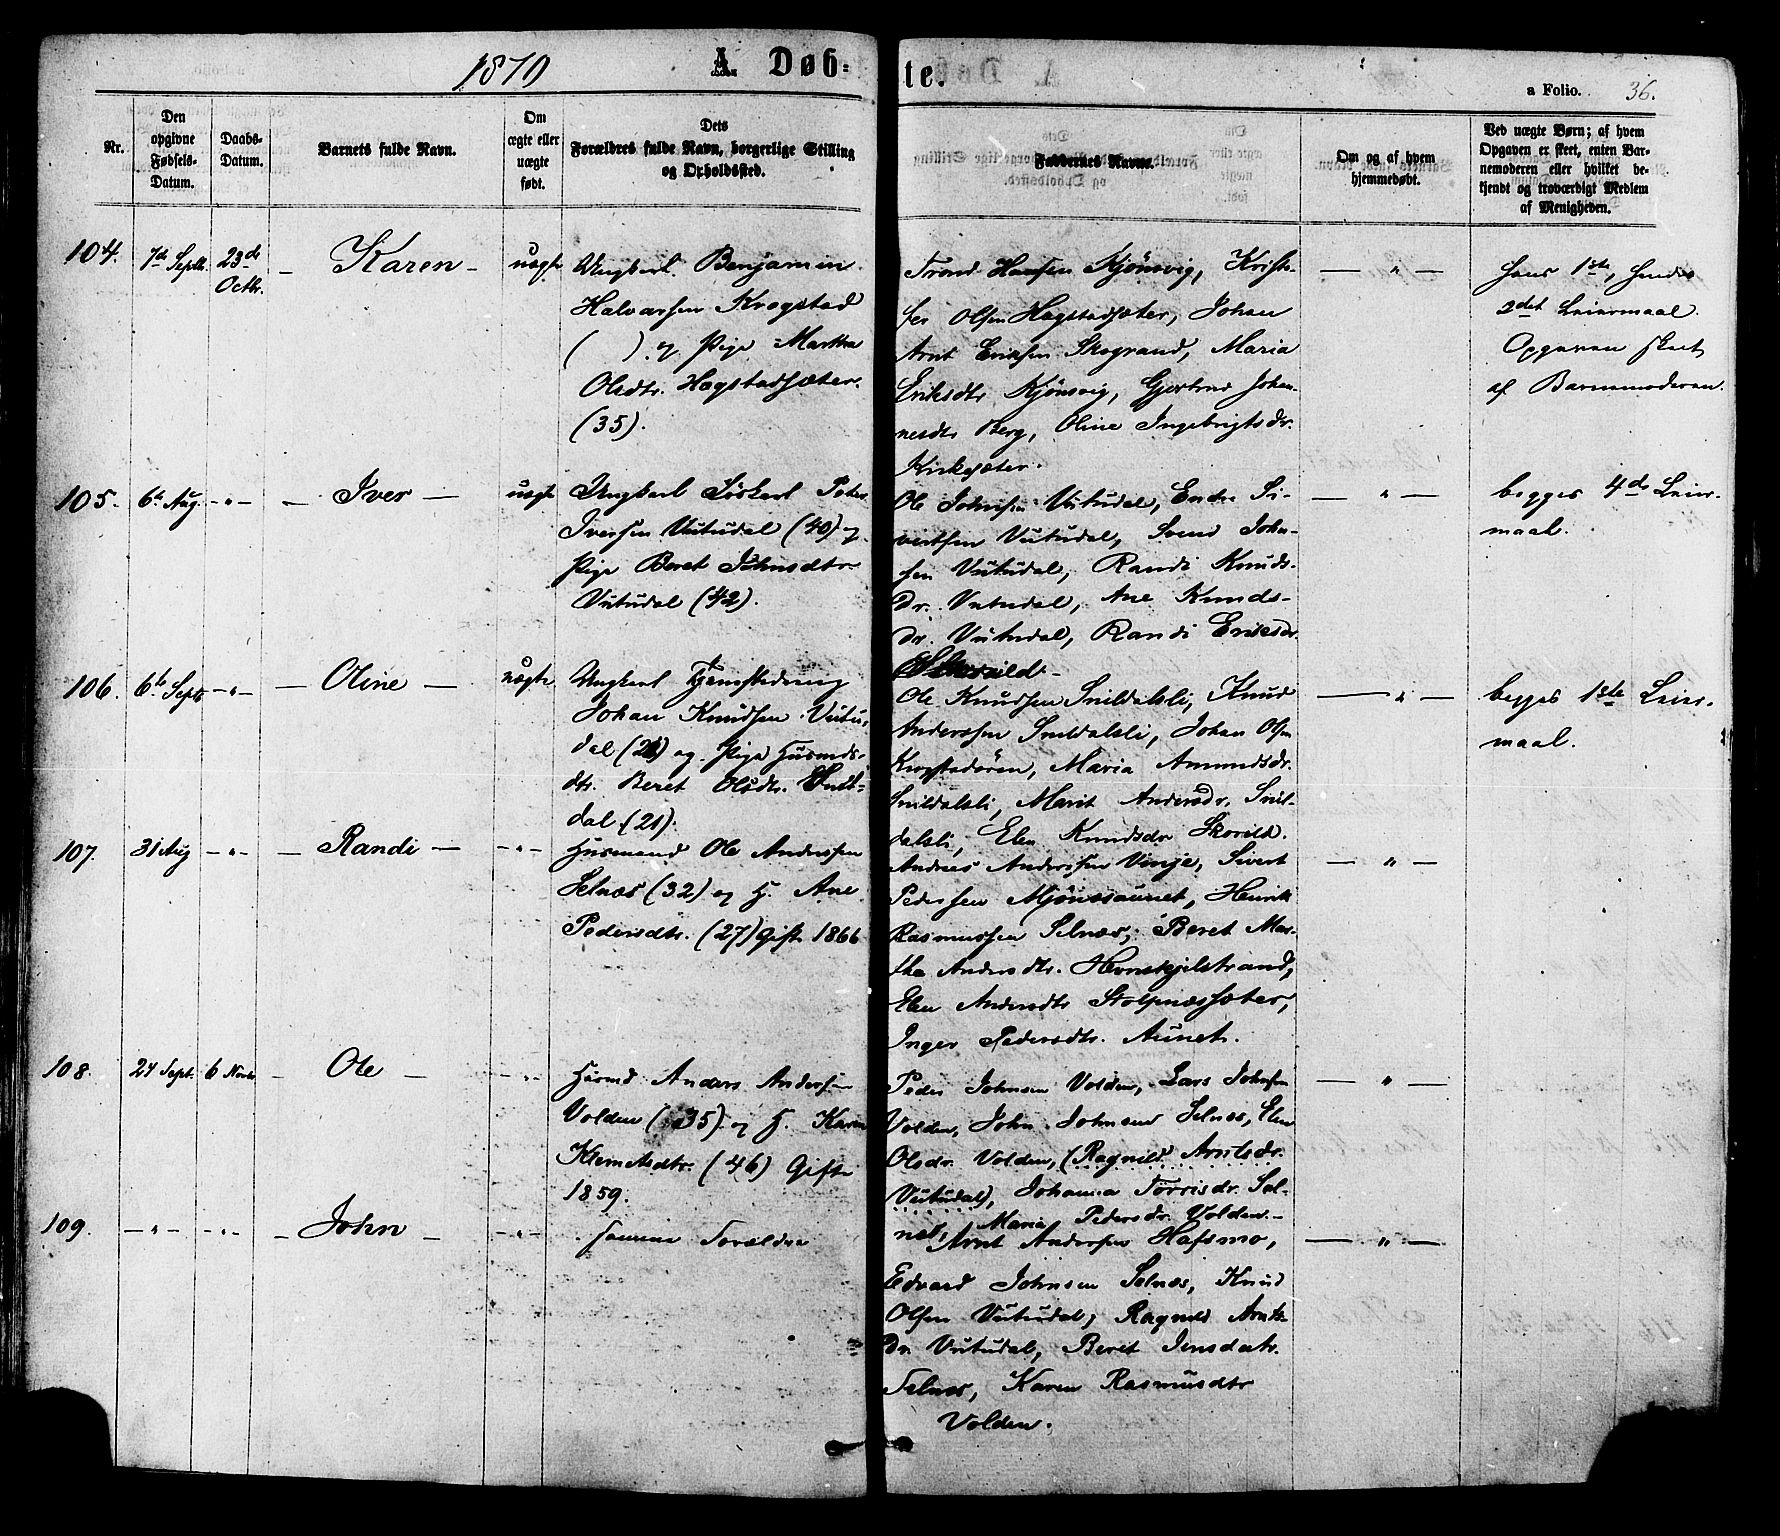 1870
A Døb=
te.
a Folio. 36.
Nr.
Den
opgivne
Fødsels-
Datum.
Daabs-
Datum.
Barnets fulde Navn.
Om
ægte eller
uægte
født.
Dets
Forældres fulde Navn, borgerlige Stilling
og Opholdssted.
Faddernes Navne.
Om og af hvem
hjemmedøbt.
Ved uægte Børn; af hvem
Opgaven er skeet, enten Bar-
nemoderen eller hvilket be-
kjendt og troværdigt Medlem
af Menigheden.
104. 7de Septb. 23de Octbr. - Karen - uægte
Ungkarl. Benjamin
Halvorsen Krogstad
( ). og Pige Martha
Olsdtr. Hagstadsæter.
(35).
Trond Hansen Kjönsvig, Krist-
fer Olsen Hagstadsæter, Johan
Arnt Eriksen Skogrand, Maria
Eriksdtr Kjönsvig, Gjertrud Johan-
nesdtr Berg, Oline Ingebrigtsdr.
Kirksæter.
— " —
hans 1ste, hendes
2det Leiermaal.
Opgaven skeet
af Barnemoderen.
105. 6te Aug. -"- - Iver - uægte
Ungkarl Peter
Iversen Vutudal (40) og
Pige Beret Johnsdtr
Vutudal (42).
Ole Johnsen Vutudal, Endre Si-
vertsen Vutudal, Svend John-
sen Vutudal, Randi Knuds-
dr. Vutudal, Ane Knuds-
dr. Vutudal, Randi Eriksdr.
— " —
begges 4de Leier-
maal.
106. 6te Septb -"- - Oline - uægte
Ungkarl
Johan Knudsen Vutu-
dal (21) og Pige Husmds-
dtr. Beret Olsdtr. Snil-
dal (21).
Ole Knudsen Snildalsli, Knud
Anderssen Snildalsli, Johan Olsen
Krogstadören, Maria Amundsdr.
Snildalsli, Marit Andersdr. Snil-
dalsli, Elen Knudsdr Skorild.
— " —
begges 1ste Leier-
maal.
107. 31 Aug -"- - Randi - -"-
Husmand Ole Andersen
Selnæs (32) og H. Ane
Pedersdtr. (27) gift 1866
Andreas Andersen Vinje, Sivert
Pedersen Mjönesaunet, Henrik
Rasmussen Selnæs, Beret Mar-
tha Andersdtr. Hernskjelstrand,
Elen Andersdtr Stolpnessæter,
Inger Pedersdtr. Aunet.
— " —
108. 24 Sept. 6 Novb - Ole - -"-
Husmd Anders Andersen
Volden (35) og H. Karen
Klemetsdtr. (46) Gift
1859.
Peder Johnsen Volden, Lars Johnsen
Volden, John Johnsen Selnæs, Elen
Olsdr. Volden, (Ragnild Arntsdr.
Vutudal), Johanna Torrisdr. Sel-
næs, Maria Pedersdr Volden.
— " —
109. -"- -"- - John - -"-
Samme Forældre
Arnt Andersen Hafsmo,
Edvard Johnsen Selnæs, Knud
Olsen Vutudal, Ragnild Arnts-
dr. Vutudal, Beret Jensdatr.
Selnæs, Karen Rasmusdtr
Volden.
— " —